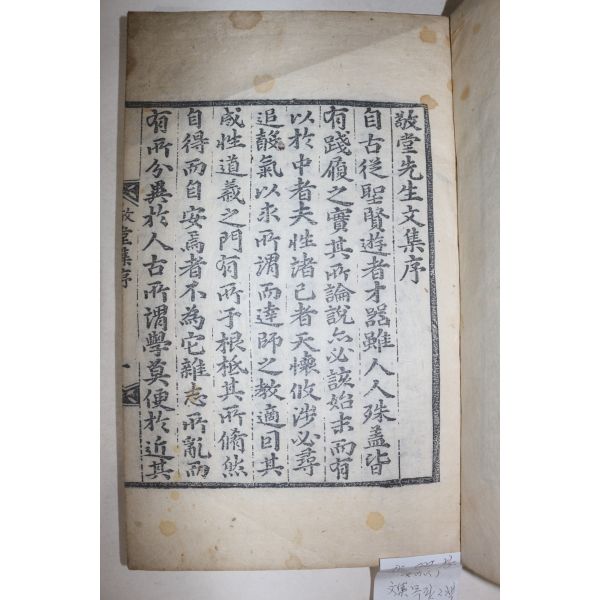 敬堂先生文集序
自古従聖賢遊者才器雖人人殊蓋皆
有踐履之實其所論說亦必該始末而有
以於中者夫性諸己者天懷攸涉必尋
追聲氣以求所謂而達師之教適因其
成性道義之門有所于根柢其所脩然
自得而自安焉者不為它雜志所亂而
有所分異於人古所謂學莫便於近其
敬堂集序 一
文集